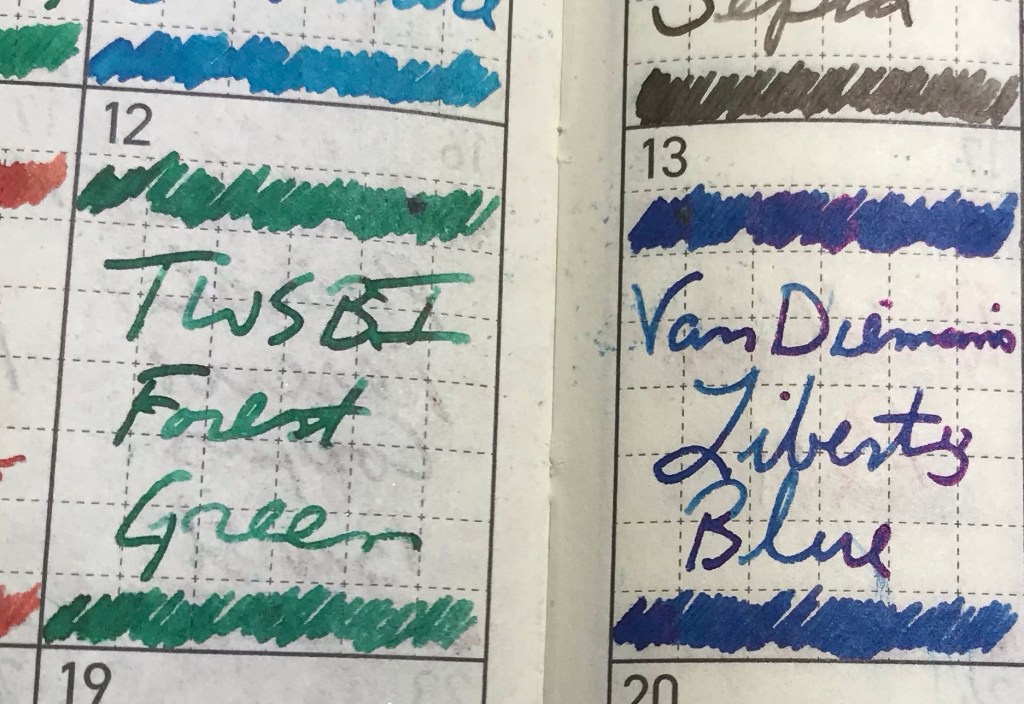 Sepia
12
TWSBI
Forest
Green
19
13
Van Diemans
Liberty
Blue
20